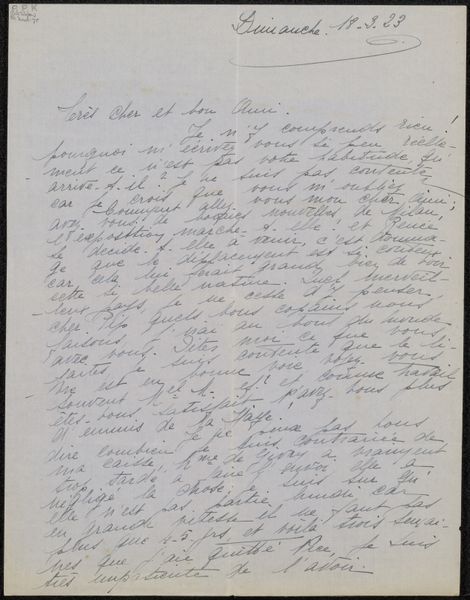 Dimanche. 18-3-23
Très cher et bon Ami.
Je n'y comprends rien!
pourquoi m'écrivez vous si peu, réelle-
ment ce n'est pas votre habitude, qu'
arrive-t-il? Je ne suis pas contente
car je crois que vous m'oubliez
Comment allez vous mon cher Ami;
avez vous de bonnes nouvelles de Milan,
l'exposition marche-t-elle et Rence
se décide-t-elle à venir, c'est domma-
ge que le déplacement est si coûteux
car cela lui ferait grand bien de voir
cette si belle nature. Quel merveil-
leux pays, je ne cesse d'y penser,
cher Pip quels bons copains nous
faisons, j'irai au bout du monde
avec vous. Dites moi ce que vous
faites, je suis contente que le li-
vre est en bonne voie, voyez vous
souvent Mel A. et comme travail
êtes-vous satisfait, n'avez-vous plus
d'ennuis de la
Je ne peux pas vous
dire combien je suis contrariée de
ma caisse, Mme de a vraiment
trop tardé à faire l'envoi, elle a
négligé la chose, je suis sur qu'
elle n'est pas partie lundi, car
en grande vitesse il ne faut pas
plus que 4-5 jrs, et voilà trois semai-
nes que j'ai quitté Nice, je suis
très impatiente de l'avoir.